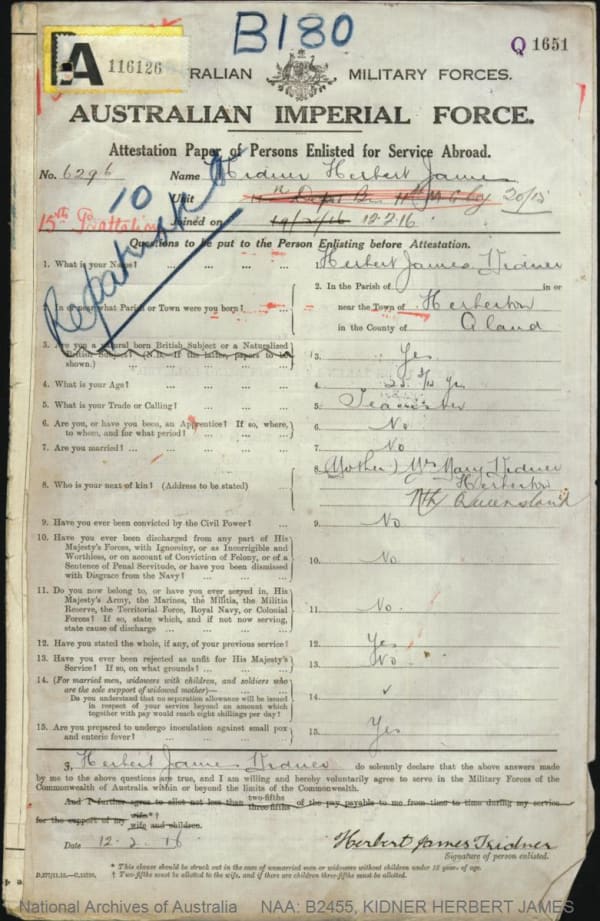 B180
Q 1651
A 116126
RALIAN MILITARY FORCES.
AUSTRALIAN IMPERIAL FORCE.
Attestation Paper of Persons Enlisted for Service Abroad.
No. 6296 Name Kidner Herbert James
10 Unit 11th M G Coy 20/15
15th Battalion Joined on 19/2/16 12.2.16
Questions to be put to the Person Enlisting before Attestation.
1. What is your Name? ... ... ... ... 1. Herbert James Kidner
2. In the Parish of in or
2. In or near what Parish or Town were you born? near the Town of Herberton
in the County of Qland
3. Are you a natural born British Subject or a Naturalized
British Subject? (N.B. If the latter, papers to be
shown.) 3. Yes
4. What is your Age? 4.
5. What is your Trade or Calling? 5. Teamster
6. Are you, or have you been, an Apprentice? If so, where,
to whom, and for what period? 6. No
7. Are you married? 7. No
8. (Mother) Mrs Mary Kidner
8. Who is your next of kin? (Address to be stated) Herberton
Nth Queensland
9. Have you ever been convicted by the Civil Power? 9. No
10. Have you ever been discharged from any part of His
Majesty's Forces, with Ignominy, or as Incorrigible and
Worthless, or on account of Conviction of Felony, or of a
Sentence of Penal Servitude, or have you been dismissed
with Disgrace from the Navy? 10. No
11. Do you now belong to, or have you ever served in, His
Majesty's Army, the Marines, the Militia, the Militia
Reserve, the Territorial Force, Royal Navy, or Colonial
Forces? If so, state which, and if not now serving,
state cause of discharge 11. No.
12. Have you stated the whole, if any, of your previous service? 12. Yes
13. Have you ever been rejected as unfit for His Majesty's
Service? If so, on what grounds? 13. No
14. (For married men, widowers with children, and soldiers who
are the sole support of widowed mother)—
Do you understand that no separation allowance will be issued
in respect of your service beyond an amount which
together with pay would reach eight shillings per day? 14. ✓
15. Are you prepared to undergo inoculation against small pox
and enteric fever? 15. Yes
I, Herbert James Kidner do solemnly declare that the above answers made
by me to the above questions are true, and I am willing and hereby voluntarily agree to serve in the Military Forces of the
Commonwealth of Australia within or beyond the limits of the Commonwealth.
And I further agree to allot not less than two-fifths three-fifths of the pay payable to me from time to time during my service
for the support of my wife*† wife and children.
Date 12.2.16 Herbert James Kidner
Signature of person enlisted.
* This clause should be struck out in the case of unmarried men or widowers without children under 18 years of age.
† Two-fifths must be allotted to the wife, and if there are children three-fifths must be allotted.
National Archives of Australia NAA: B2455, KIDNER HERBERT JAMES